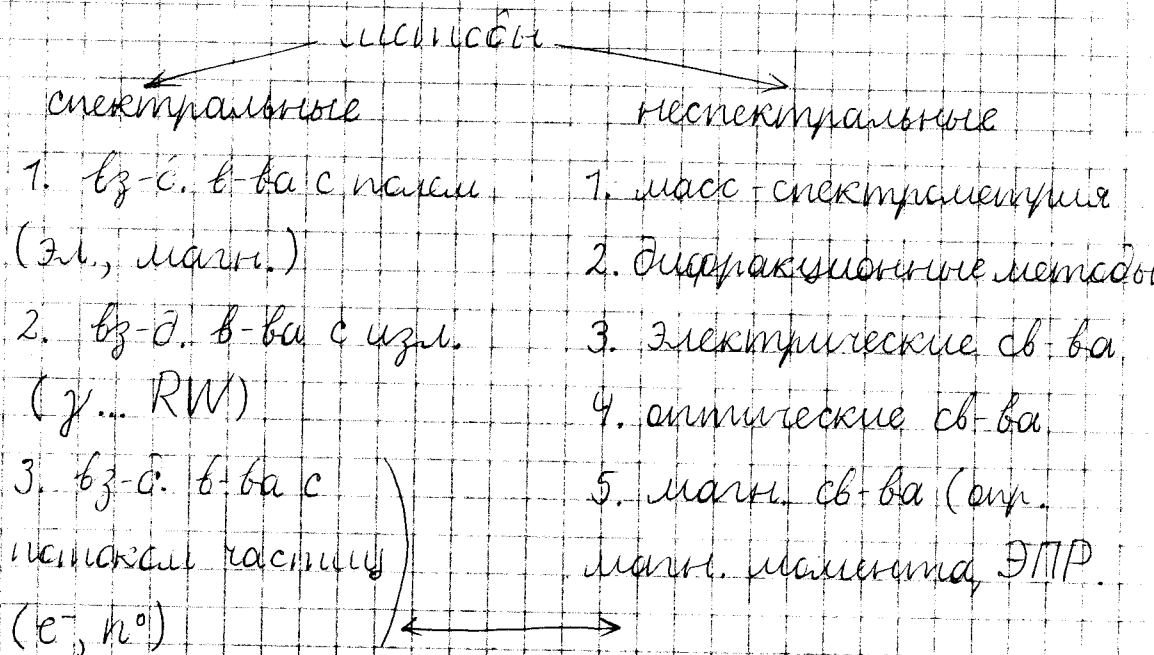 методы
спектральные
1. вз-д. в-ва с полем
(эл., магн.)
2. вз-д. в-ва с изл.
(γ... RW)
3. вз-д. в-ва с
потоком частиц
(e⁻, n⁰)
неспектральные
1. масс-спектрометрия
2. дифракционные методы
3. электрические св-ва
4. оптические св-ва
5. магн. св-ва (опр.
магн. момента, ЭПР.